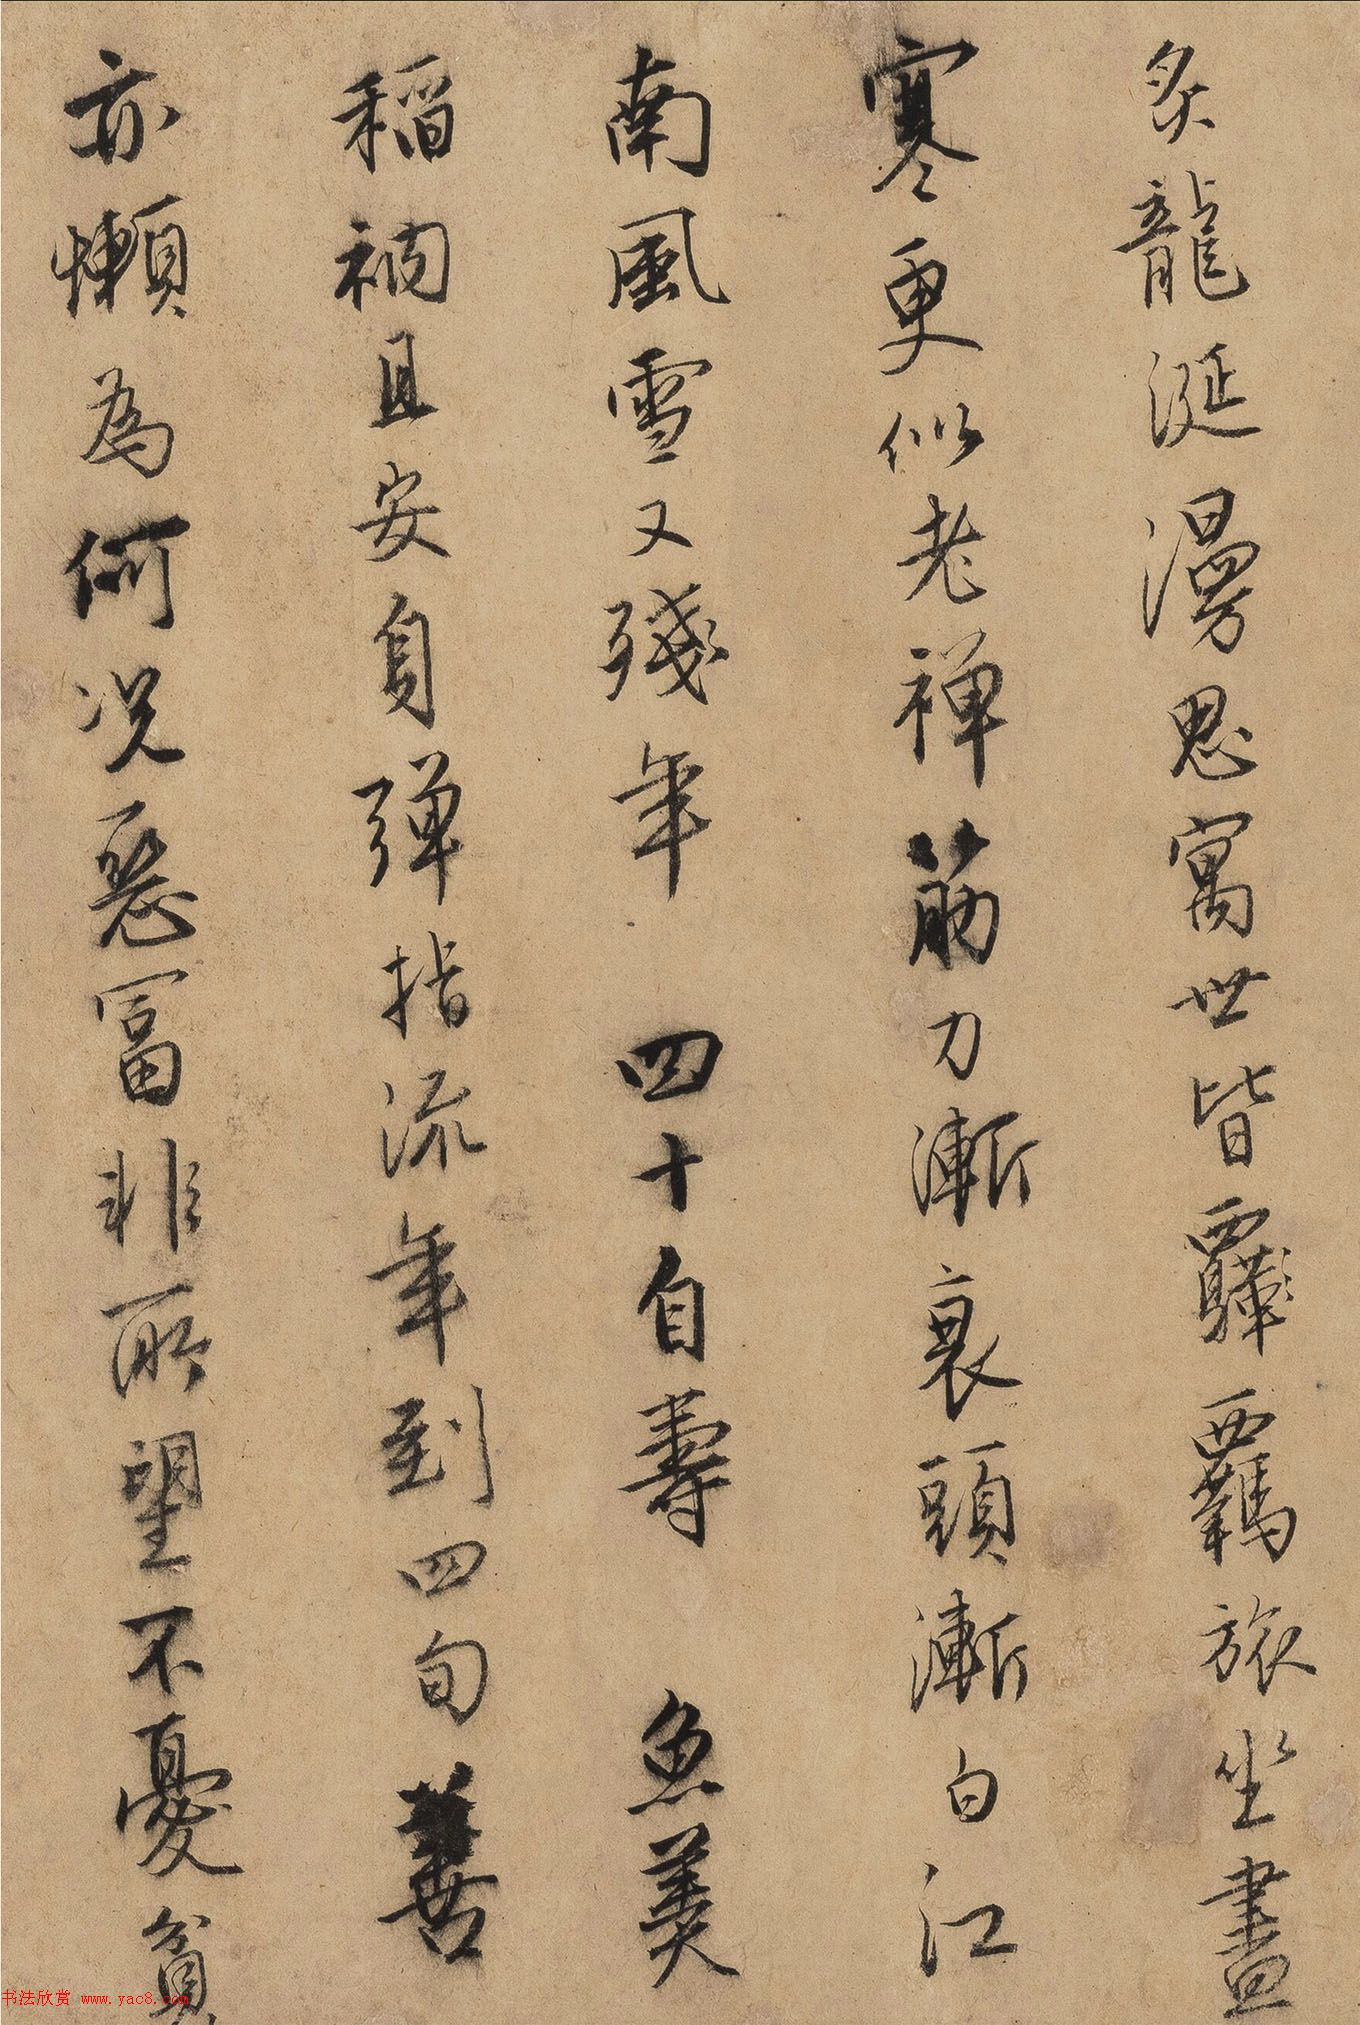 炙龍涎漫思寓世皆羈羈旅坐盡
寒更似老禪筋力漸衰頭漸白江
南風雪又殘年 四十自壽 魚羹
稻衲且安身彈指流年到四旬善
亦懶為何況惡富非所望不憂貧
书法欣赏 www.yac8.com